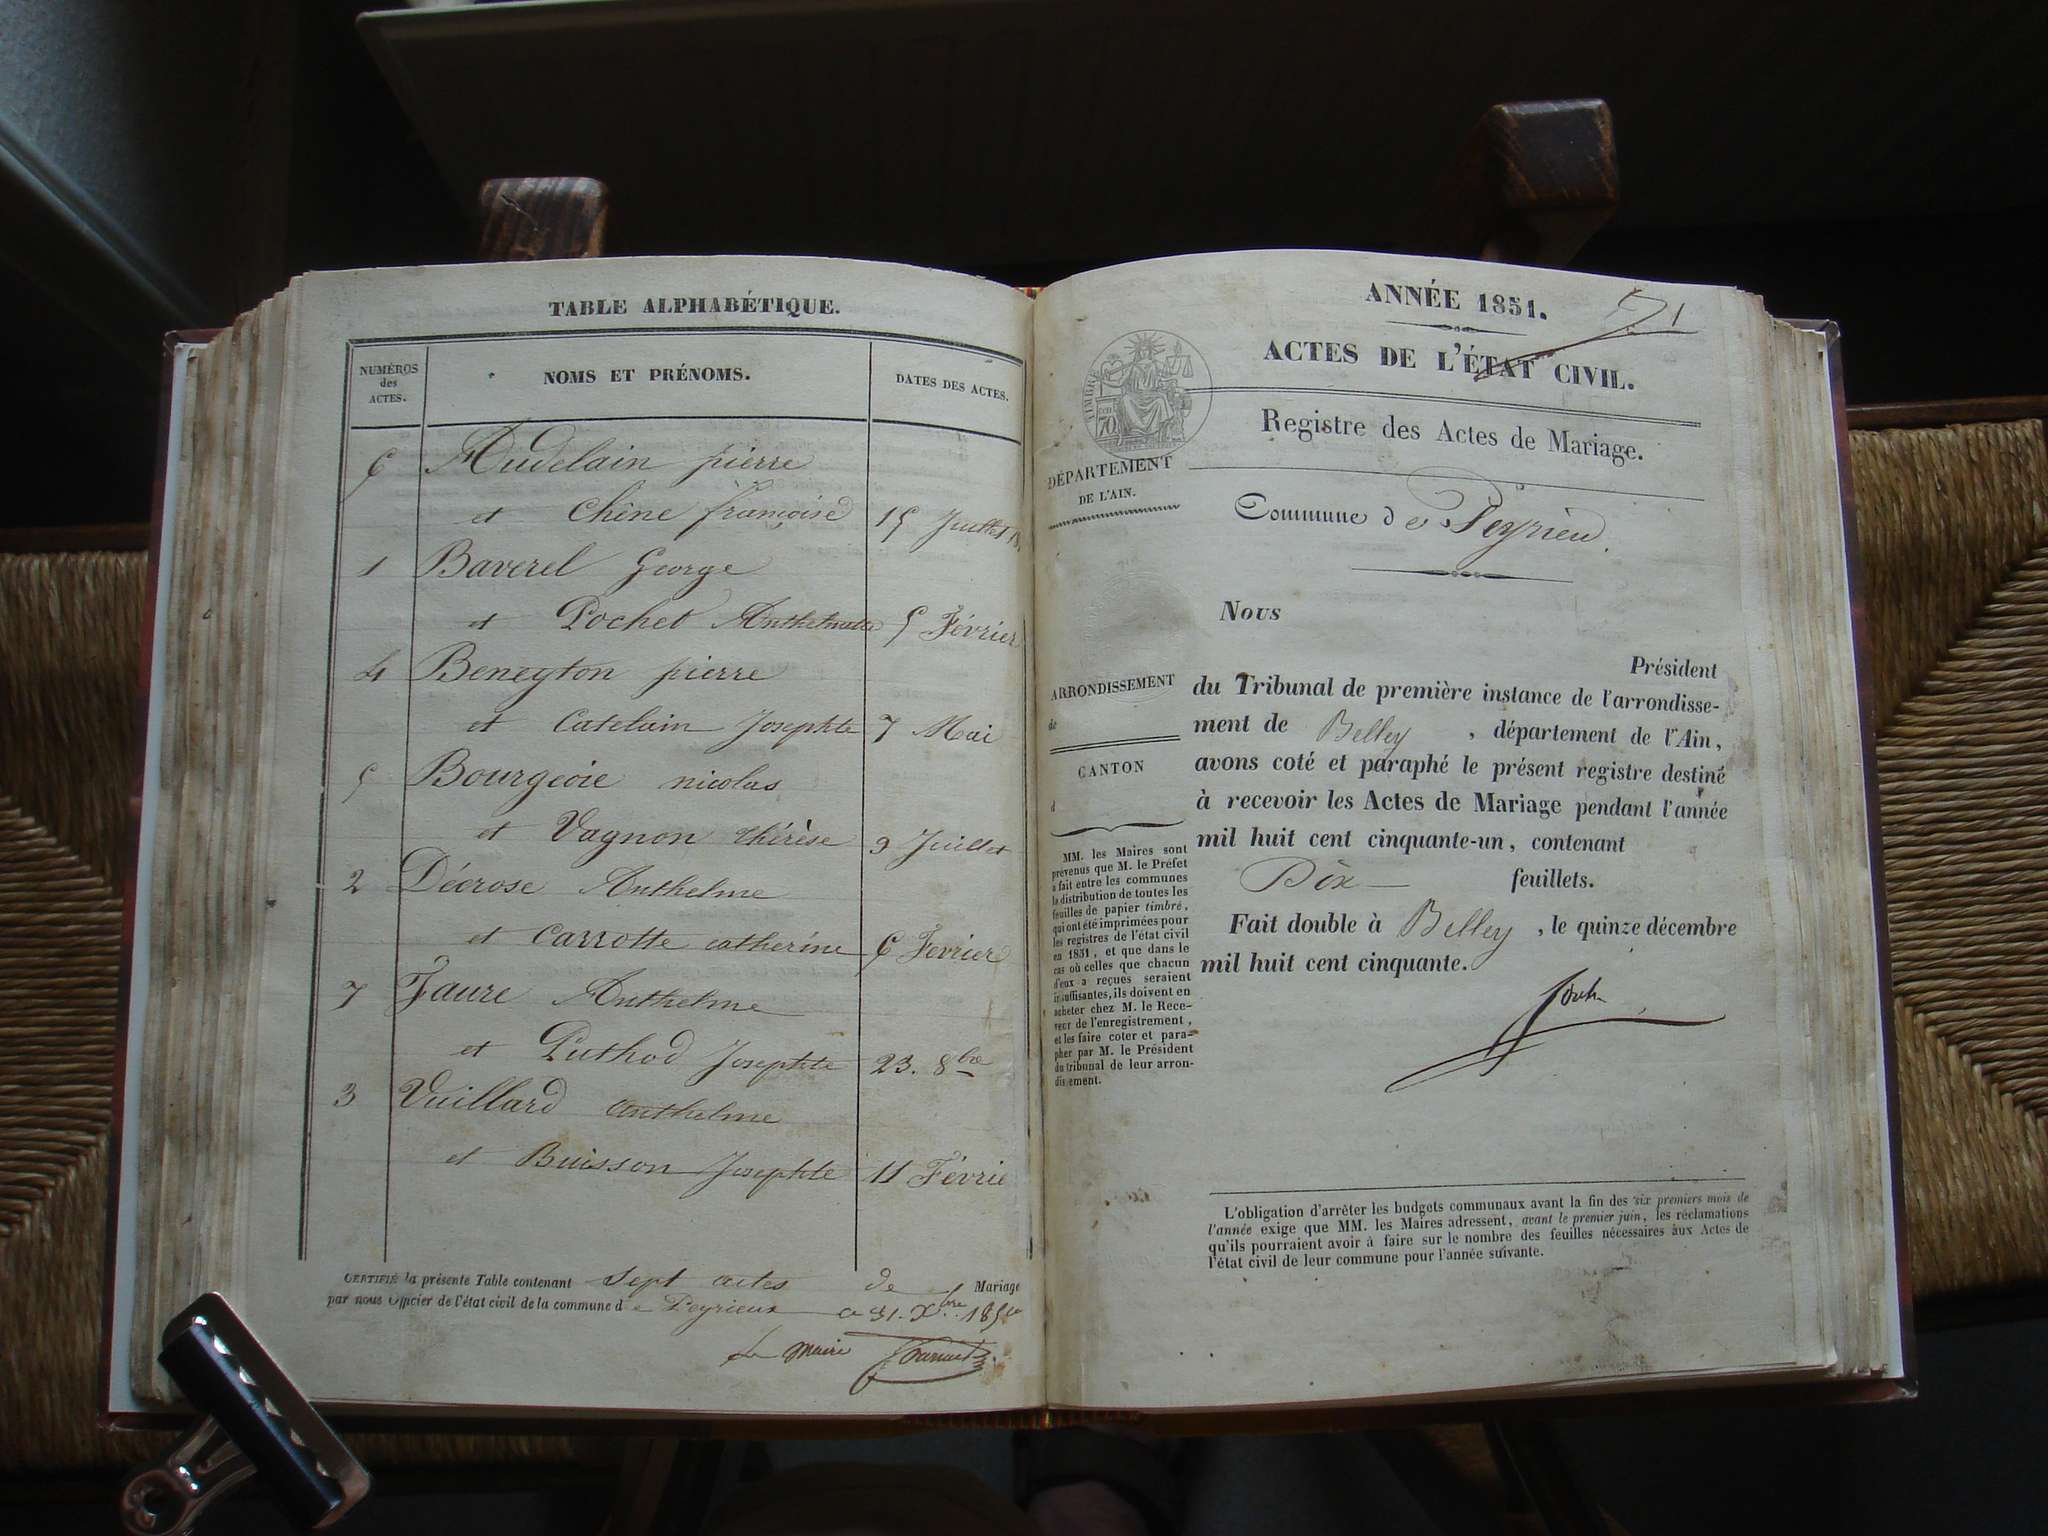 TABLE ALPHABÉTIQUE.
NUMÉROS
des
ACTES.
NOMS ET PRÉNOMS.
DATES DES ACTES.
6 Audelain pierre
et Chêne françoise 15 Juillet
1 Baverel George
et Pochet Anthelmette 5 Février
4 Beneyton pierre
et Catelain Josephte 7 Mai
5 Bourgeoie nicolas
et Vagnon thérèse 9 Juillet
2 Décrose Anthelme
et Carrotte catherine 6 Fevrier
7 Faure Anthelme
et Puthod Josephte 23. 8bre
3 Vuillard anthelme
et Buisson Josephte 11 Févrie
CERTIFIÉ la présente Table contenant Sept actes de Mariage
par nous Officier de l'état civil de la commune de Peyrieux ce 31. Xbre 1850
Le Maire
ANNÉE 1851.
1
ACTES DE L'ÉTAT CIVIL.
Registre des Actes de Mariage.
TIMBRE
70
DÉPARTEMENT
DE L'AIN.
Commune de Peyrieu.
Nous
Président
du Tribunal de première instance de l'arrondisse-
ment de Belley, département de l'Ain,
avons coté et paraphé le présent registre destiné
à recevoir les Actes de Mariage pendant l'année
mil huit cent cinquante-un, contenant
Dix feuillets.
Fait double à Belley, le quinze décembre
mil huit cent cinquante.
ARRONDISSEMENT
de
CANTON
d
MM. les Maires sont
prévenus que M. le Préfet
a fait entre les communes
la distribution de toutes les
feuilles de papier timbré,
qui ont été imprimées pour
les registres de l'état civil
en 1851, et que dans le
cas où celles que chacun
d'eux a reçues seraient
insuffisantes, ils doivent en
acheter chez M. le Rece-
veur de l'enregistrement,
et les faire coter et para-
pher par M. le Président
du tribunal de leur arron-
dissement.
L'obligation d'arrêter les budgets communaux avant la fin des six premiers mois de
l'année exige que MM. les Maires adressent, avant le premier juin, les réclamations
qu'ils pourraient avoir à faire sur le nombre des feuilles nécessaires aux Actes de
l'état civil de leur commune pour l'année suivante.